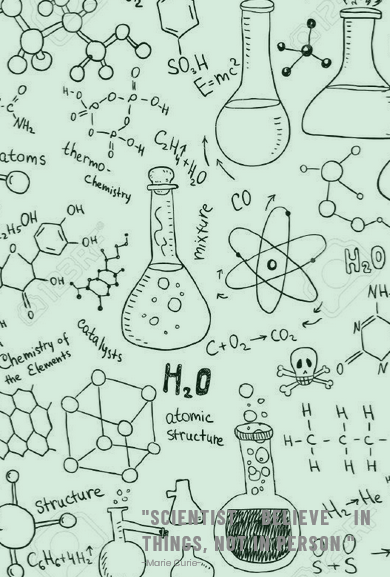 SO₃H
E=mc²
NH₂
atoms
thermo-
chemistry
C₂H₄+H₂O
mixture
CO
H₂O
C₂H₅OH
OH
OH
OH
catalysts
C+O₂→CO₂
Chemistry of
the Elements
H₂O
atomic
structure
structure
C₆H₆+4H₂↑
S+S
"SCIENTIST BELIEVE IN
THINGS, NOT IN PERSON"
-Marie Curie-